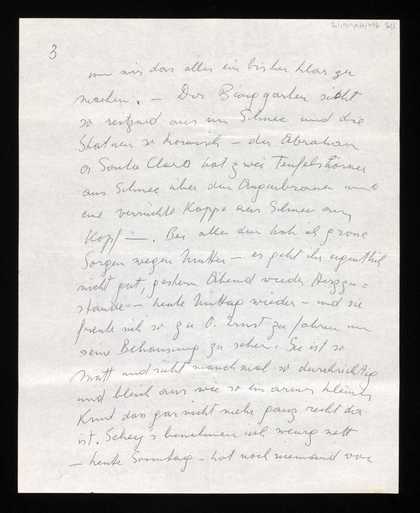 3
um mir das alles ein bisher klar zu
machen. – Der Burggarten sieht
so reizend aus im Schnee und die
Statuen so komisch – der Abraham
a Santa Clara hat zwei Teufelshörner
aus Schnee über den Augenbrauen und
eine verrückte Kappe aus Schnee am
Kopf –. Bei alledem hab ich große
Sorgen wegen Mutter – es geht ihr eigentlich
nicht gut, gestern Abend wieder Herzzu=
stände – heute Mittag wieder – und sie
freute sich so zu O. Ernst zu fahren um
seine Behausung zu sehen. Sie ist so
matt und sieht manchmal so durchsichtig
und bleich aus wie so ein armes kleines
Kind das gar nicht mehr ganz recht da
ist. benehmen sich wenig nett
– heute Sonntag – hat noch niemand von